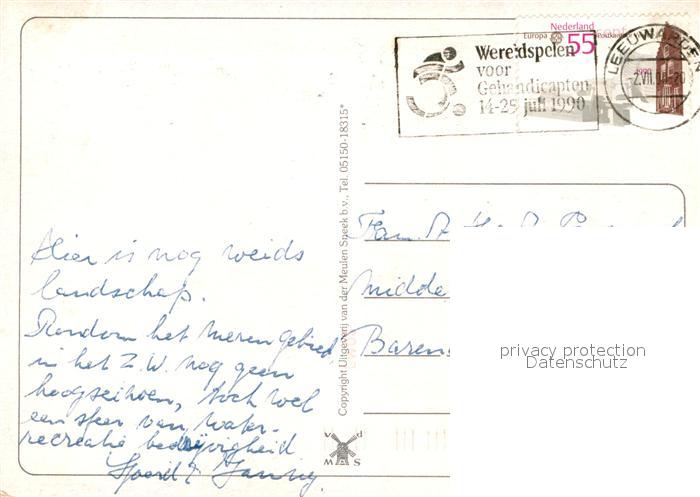 Nederland
Europa 55
Wereldspelen
voor
Gehandicapten
14-25 juli 1990
LEEUWARDEN
-2.VII.
Copyright Uitgeverij van der Meulen Sneek b.v., Tel. 05150-18315*
Hier is nog weids
landschap.
Rondom het merengebied
in het Z.W. nog geen
hoogseizoen, toch wel
een sfeer van water-
recreatie bedrijvigheid.
Sjoerd &
Fam. A.
Midde
Baren
privacy protection
Datenschutz